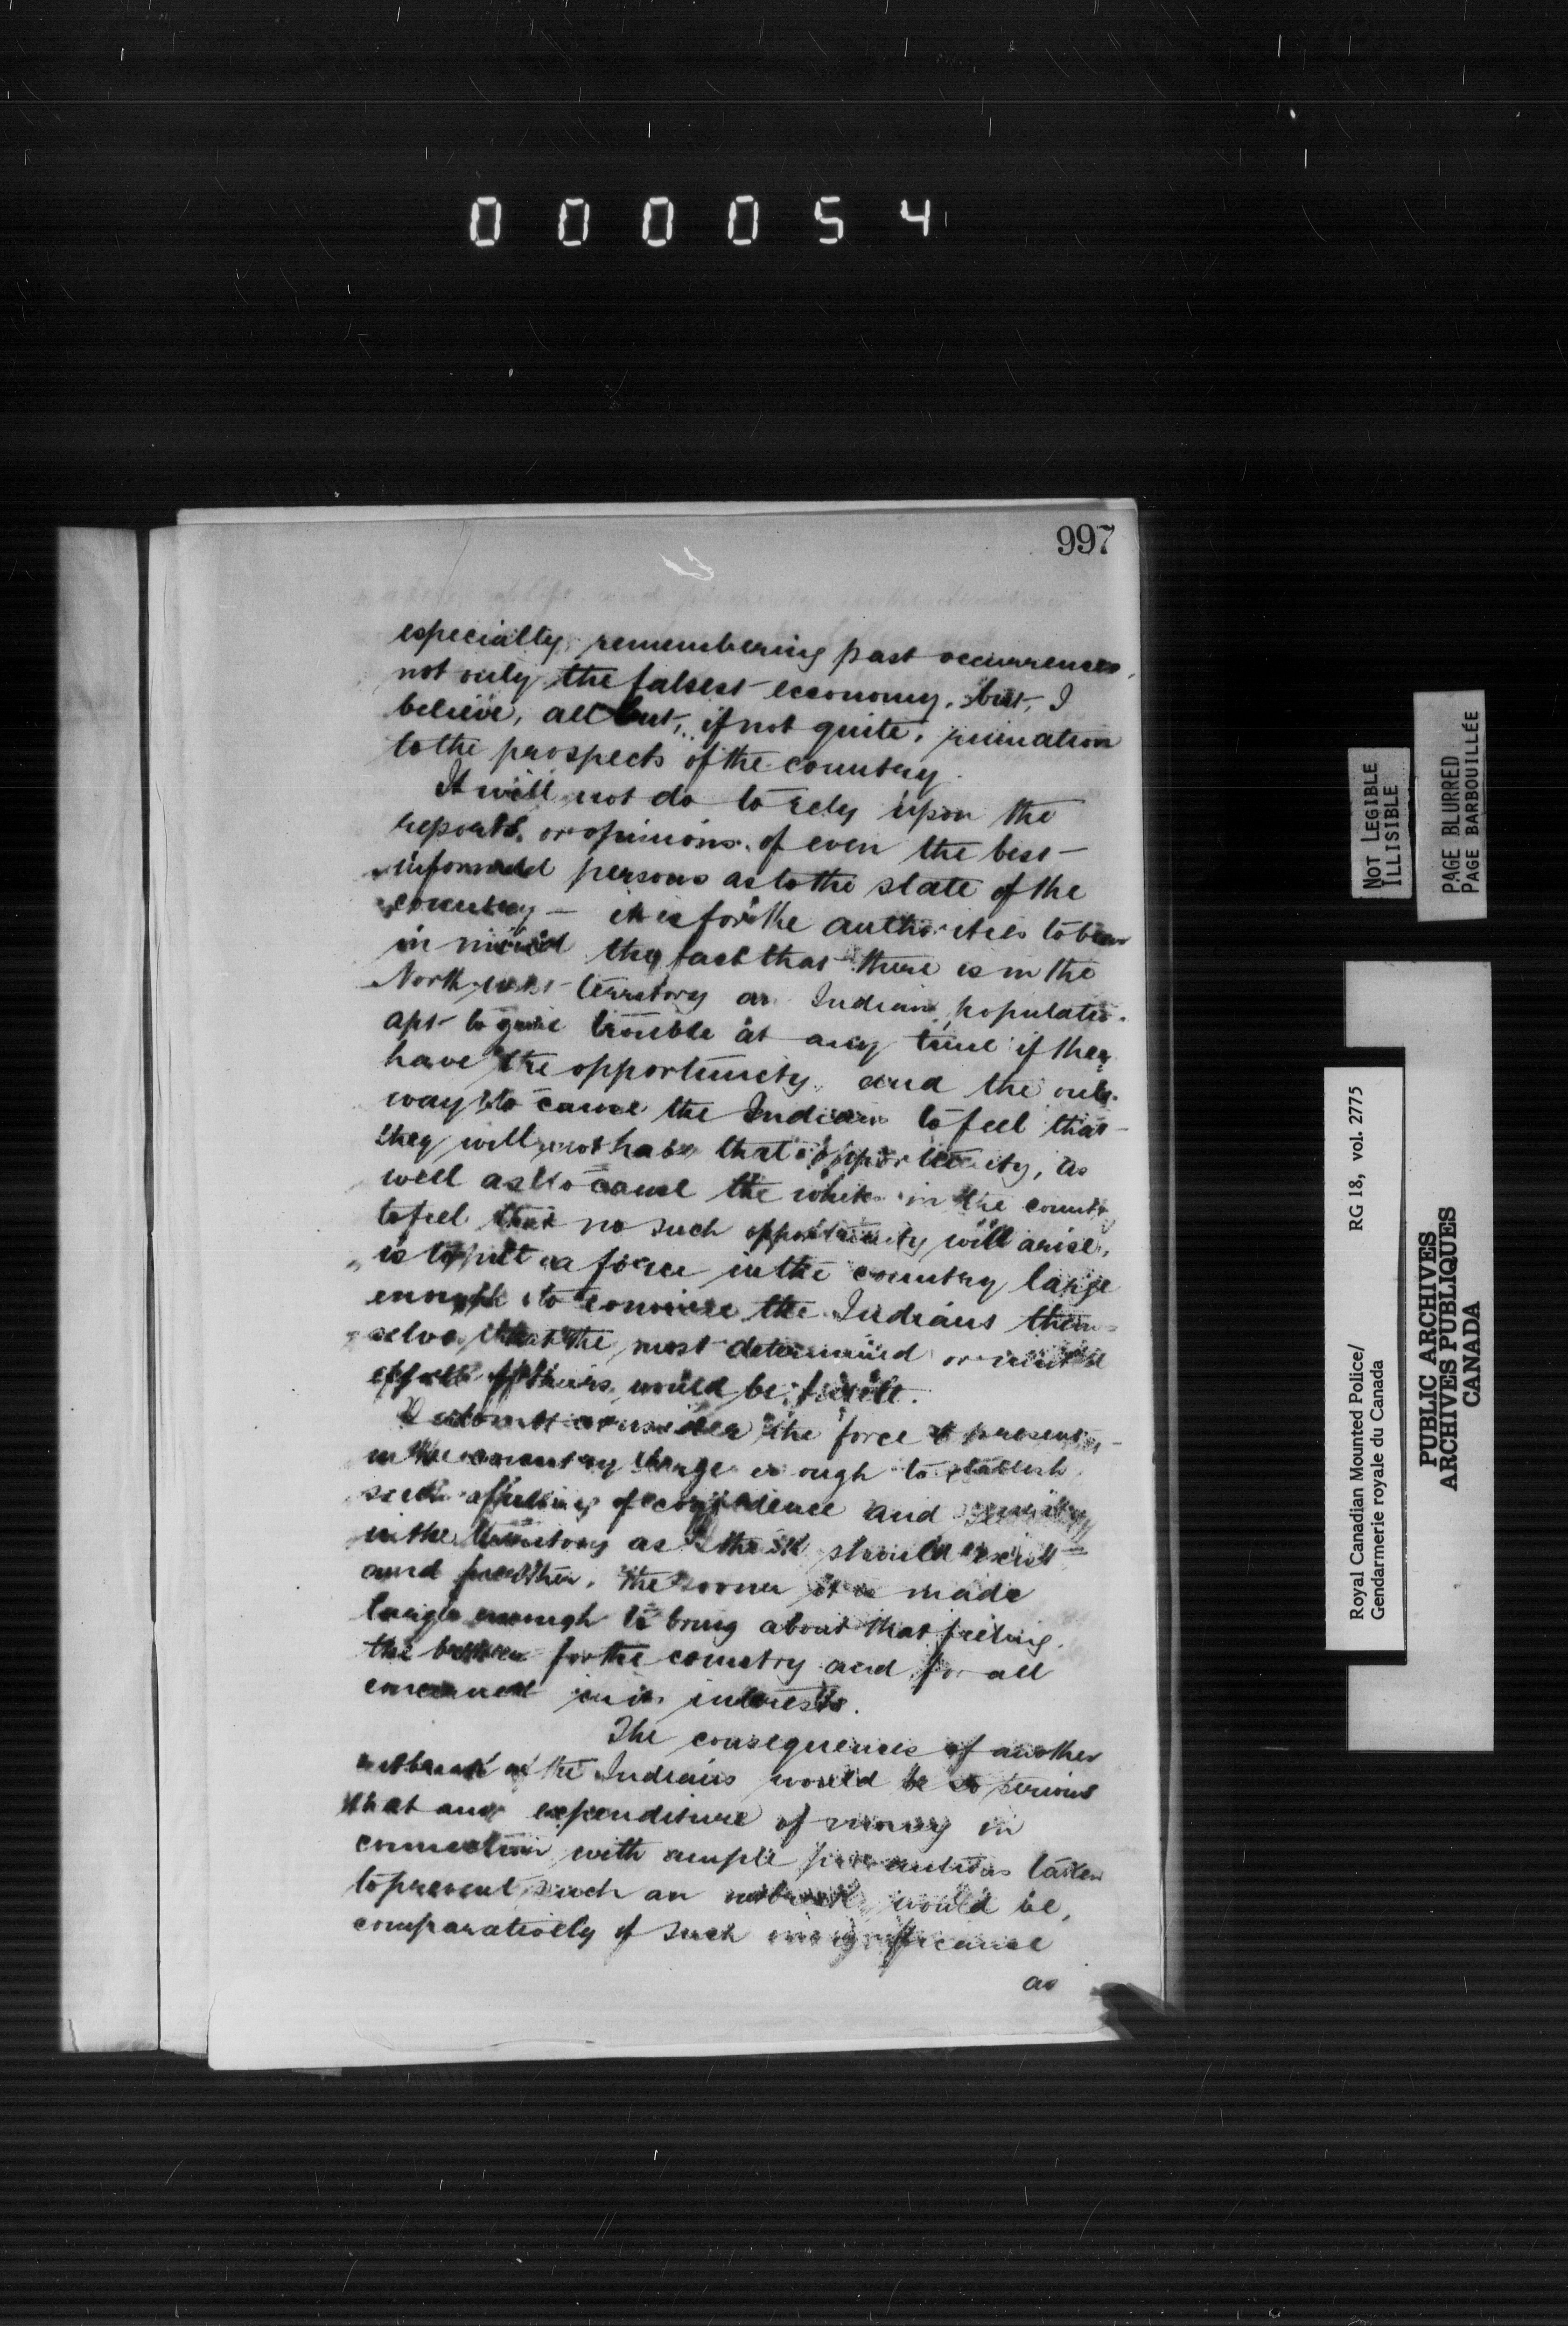 000054
997
especially, remembering past occurrences,
not only the falsest economy, but, I
believe, all but, if not quite, ruination
to the prospects of the country.
It will not do to rely upon the
reports or opinions of even the best
informed persons as to the state of the
country — it is for the authorities to bear
in mind the fact that there is in the
North-west territory an Indian populatio.
apt to give trouble at any time if they
have the opportunity and the only
way to cause the Indians to feel that
they will not have that opportunity, as
well as to cause the whites in the country
to feel that no such opportunity will arise,
is to put a force in the country large
enough to convince the Indians them-
selves that the most determined or
efforts of theirs would be futile.
I do not consider the force at present
in the country large enough to establish
such a feeling of confidence and security
in the territory as there should exist
and further, the sooner it is made
large enough to bring about that feeling
the better for the country and for all
concerned in its interests.
The consequences of another
outbreak of the Indians would be so serious
that any expenditure of money in
connection with ample precautions taken
to prevent such an outbreak, would be,
comparatively of such insignificance
as
NOT LEGIBLE
ILLISIBLE
PAGE BLURRED
PAGE BARBOUILLÉE
Royal Canadian Mounted Police/ RG 18, vol. 2775
Gendarmerie royale du Canada
PUBLIC ARCHIVES
ARCHIVES PUBLIQUES
CANADA